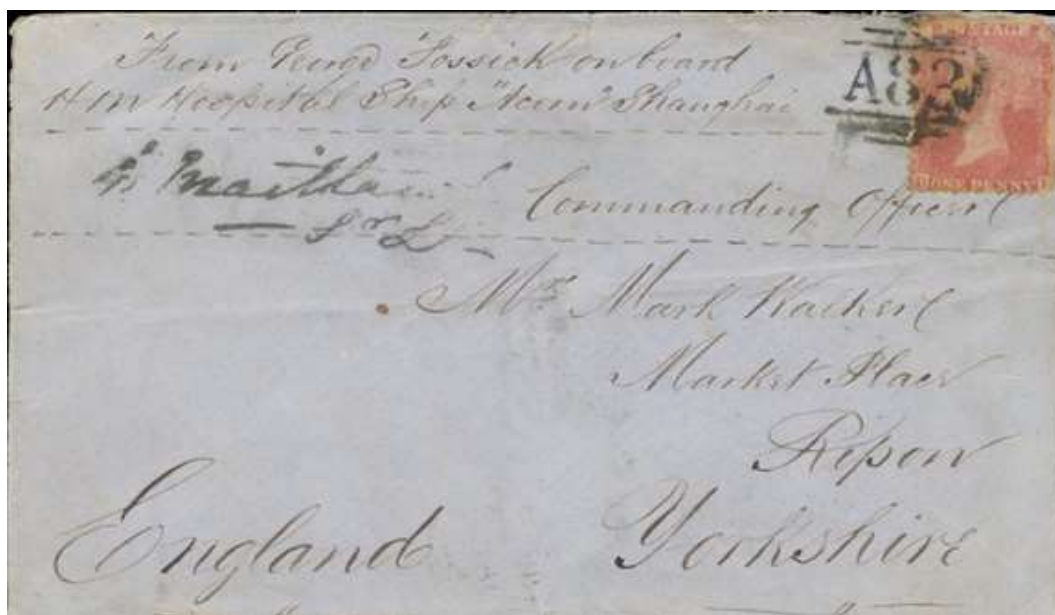 From George Fossick on board
H M Hospital Ship "Acorn" Shanghai
A82
POSTAGE
ONE PENNY
Commanding Officer
Mr Mark
Market Place
Ripon
Yorkshire
England